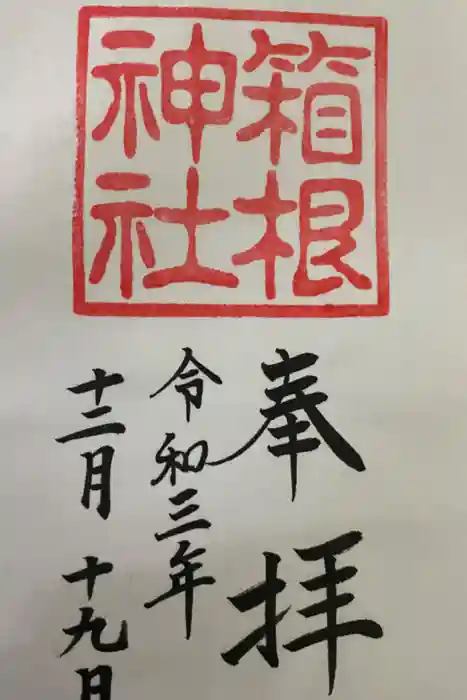 箱根
神社
奉拝
令和三年
十二月十九日